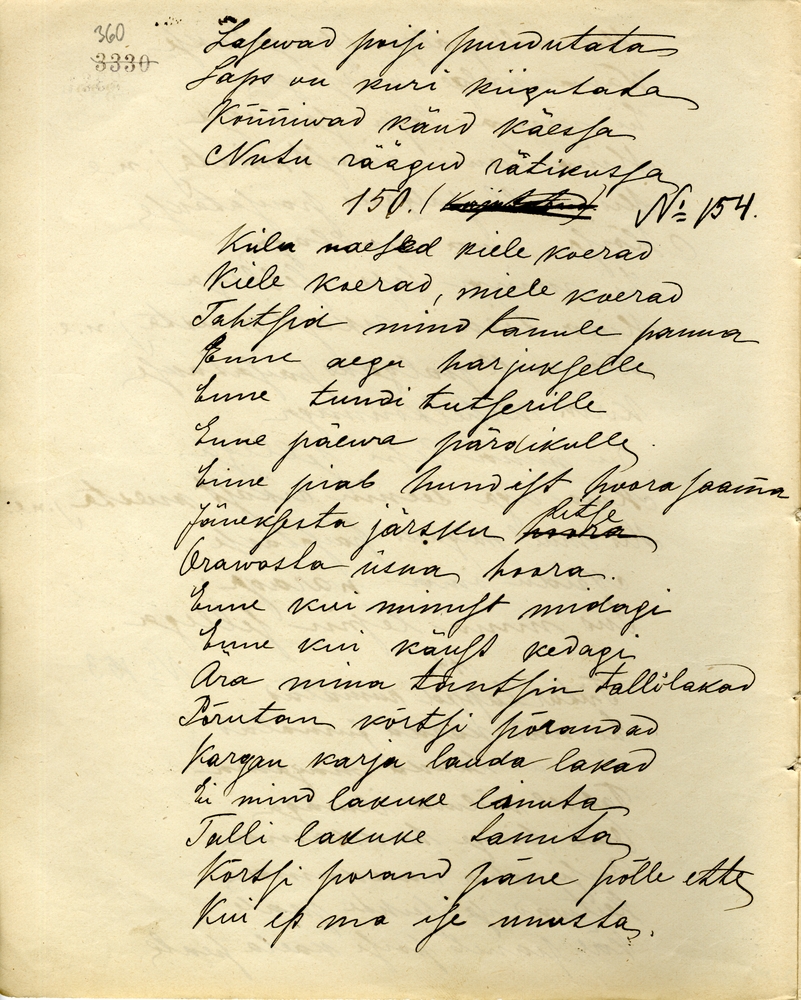 360
3330
Lasewad poisi pundutata
Laps on kuri kiigutada
Kõnniwad käud käessa
Nutu räägud rätikussa
150. ( № 154.
Küla naesed kiele koerad
Kiele koerad, miele koerad
Tahtsid mind tanule panna
Enne aegu harjukselle
Enne tundi tutserille
Enne päewa pärdikulle
Enne piab hundist hoora saama
Jäneksesta järsku litse hoora
Orawasta üsna hoora.
Enne kui minust midagi
Enne kui käust kedagi
Ära mina tantsin tallilakad
Põrutan kõrtsi põrandad
Kargan karja lauda lakad
Ei mind lakuke lainuta
Talli lakuke tanuta
Kõrtsi porand päne põlle ette
Kui ep ma ise unusta.